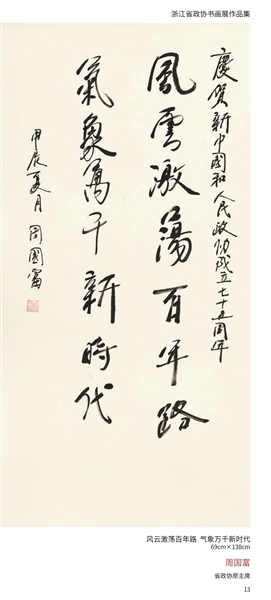 浙江省政协书画展作品集
慶贺新中國和人民政协成立七十五周年
風雲激蕩百年路
氣象萬千新時代
甲辰夏月 周國富
风云激荡百年路 气象万千新时代
69cm×138cm
周国富
省政协原主席
13